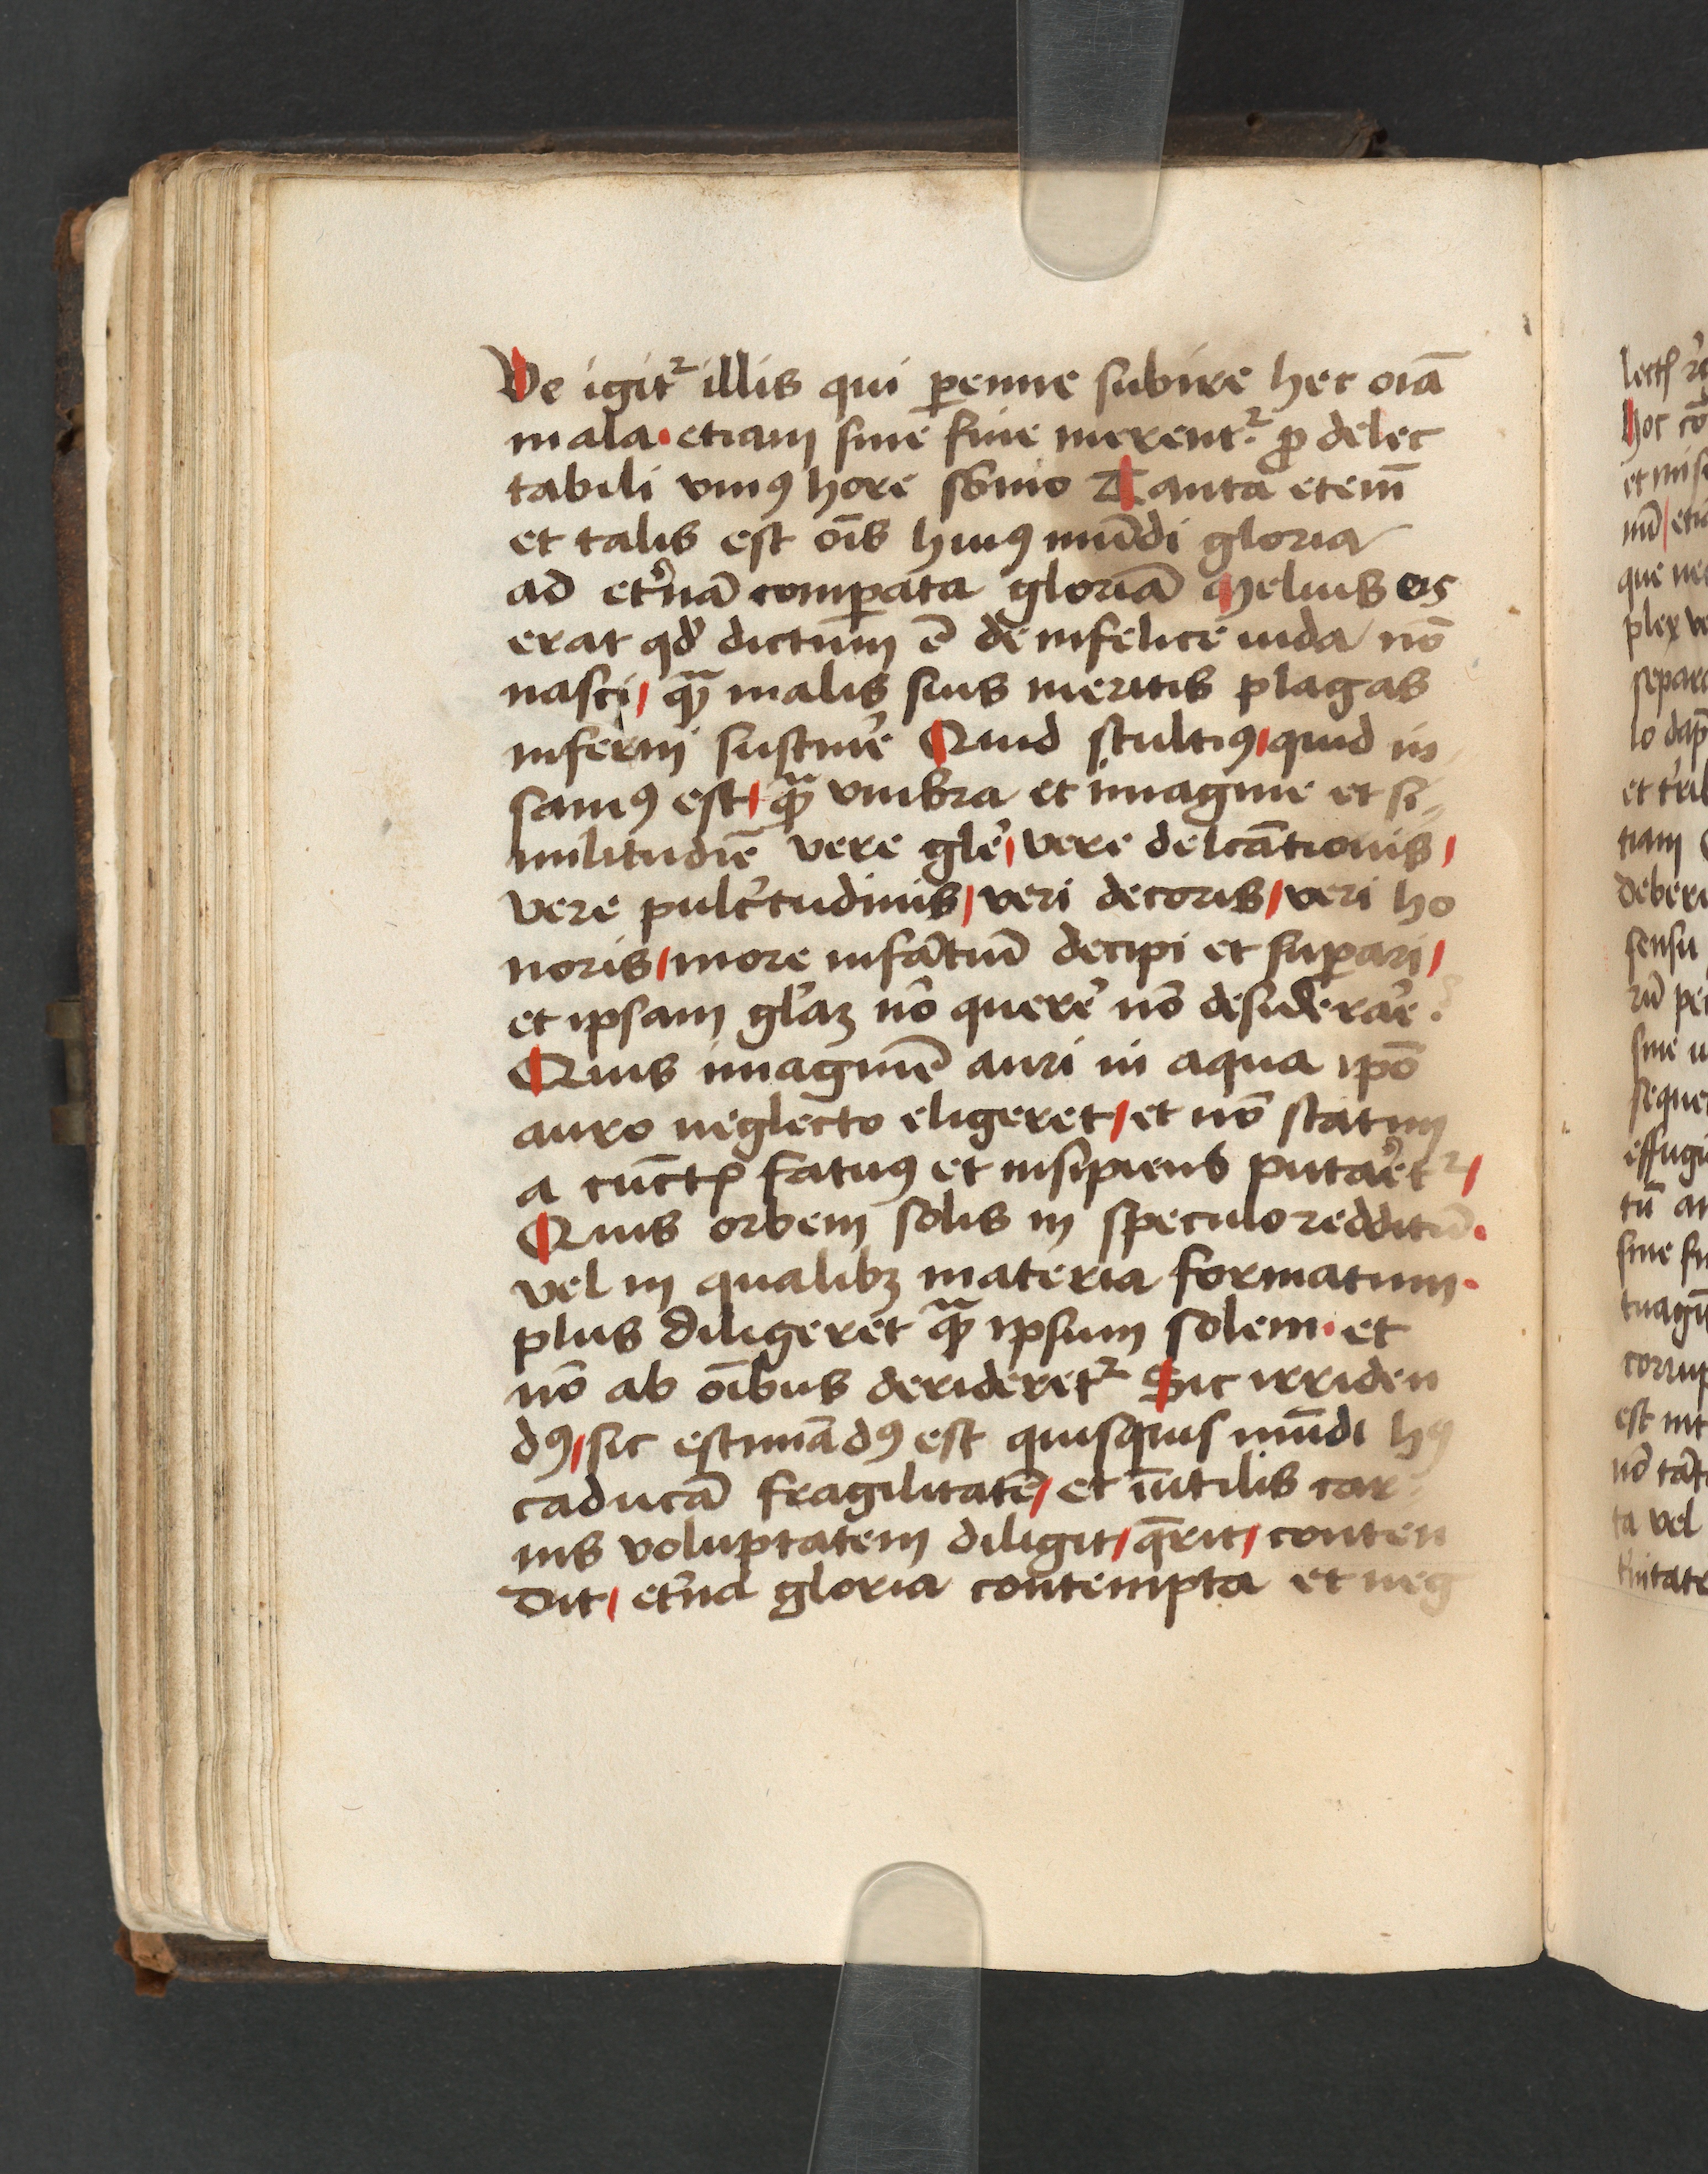 Ve igit᷑ illis qui ꝑenne subire hec oīa
mala · etiam sine fine merent᷑ ꝓ delec
tabili vniꝰ hore sōnio Tanta etenī
et talis est oīs huiꝰ mūdi gloria
ad et̓nā comꝑata gloriā Melius eis
erat qd̓ dictum ē de infelice iuda nō
nasci / qᷓ malis suis meritis plagas
inferni sustine̓ Quid stultiꝰ / quid in
saniꝰ est / qᷓ vmbra et imagine et si
militudīe vere gle̓ / vere delcātionis /
vere pulc̓tudinis / veri decoris / veri ho
noris / more infātiū decipi et suꝑari /
et ipsam gl̓aꝫ nō quere̓ nō desidera̓e .
Quis imaginē auri in aqua ipō
auro neglecto eligeret / et nō statim
a cūctꝭ fatuꝰ et insipiens puta̓et᷑ /
Quis orbem solis in speculo redditū ·
vel in qualibꝫ materia formatum ·
plus diligeret qᷓ ipsum solem · et
nō ab oībus derideret᷑ Sic irriden
dꝰ / sic estimādꝰ est quisquis mūdi hꝰ
caducā fragilitatē / et īutilis car
nis voluptatem diligit / q̄rit / conten
dit / et̓na gloria contempta et neg
lectꝭ
hoc cō
et mise
mū / etia
que nec
plex ve
separa
lo dap
et t̓ri
tiam
deberi
sensu
rū per
sine
seque
effugi
tū
sine fi
corrup
est
nō tāt
ta vel